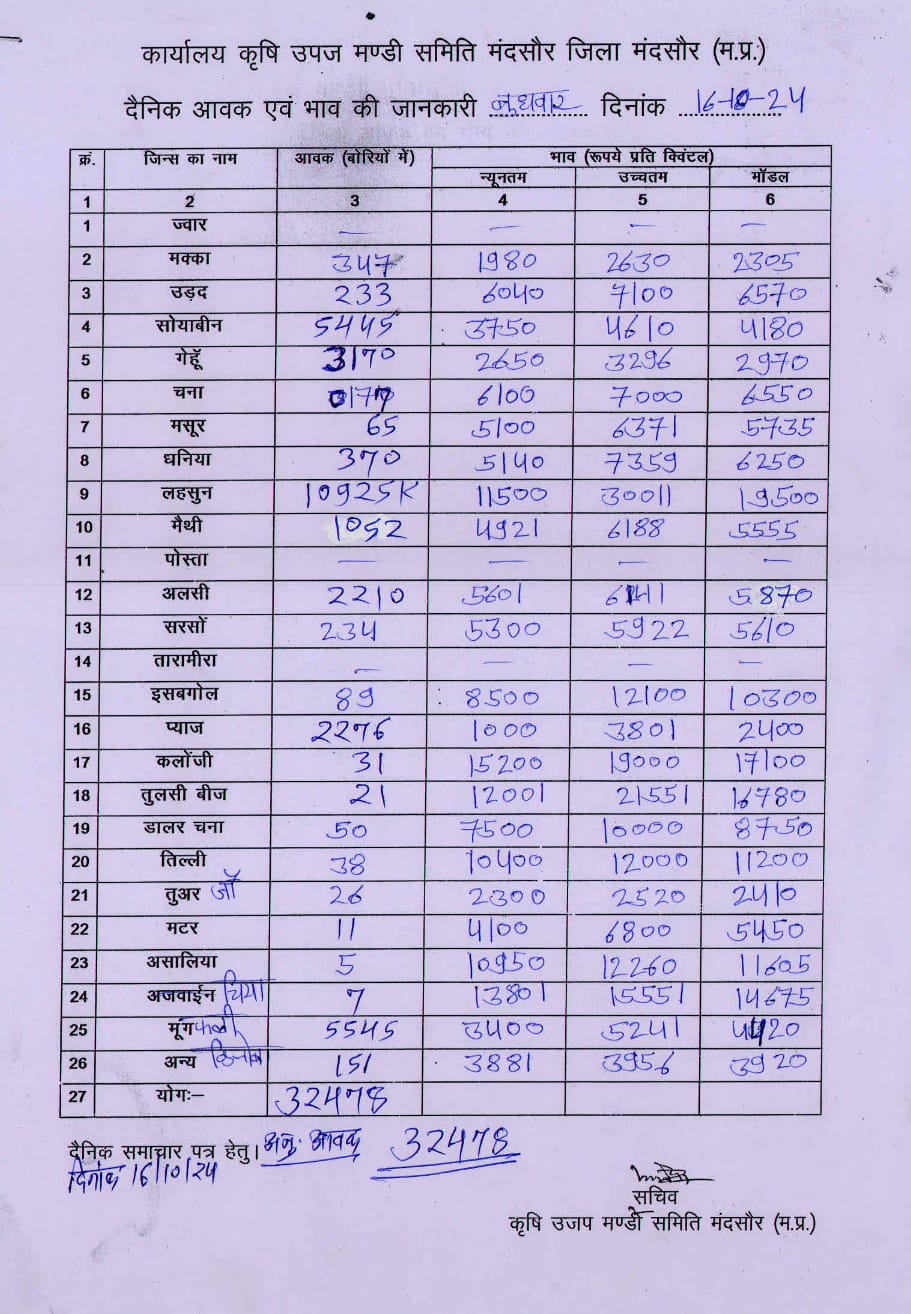 कार्यालय कृषि उपज मण्डी समिति मंदसौर जिला मंदसौर (म.प्र.)
दैनिक आवक एवं भाव की जानकारी बुधवार दिनांक 16-10-24
क्रं. जिन्स का नाम आवक (बोरियों में) भाव (रूपये प्रति क्विंटल)
न्यूनतम उच्चतम मॉडल
1 2 3 4 5 6
1 ज्वार — — — —
2 मक्का 347 1980 2630 2305
3 उड़द 233 6040 7100 6570
4 सोयाबीन 5445 3750 4610 4180
5 गेहूँ 3170 2650 3296 2970
6 चना 0177 6100 7000 6550
7 मसूर 65 5100 6371 5735
8 धनिया 370 5140 7359 6250
9 लहसुन 10925K 11500 30011 19500
10 मैथी 1052 4921 6188 5555
11 पोस्ता — — — —
12 अलसी 2210 5601 6141 5870
13 सरसों 234 5300 5922 5610
14 तारामीरा — — — —
15 इसबगोल 89 8500 12100 10300
16 प्याज 2276 1000 3801 2400
17 कलोंजी 31 15200 19000 17100
18 तुलसी बीज 21 12001 21551 16780
19 डालर चना 50 7500 10000 8750
20 तिल्ली 38 10400 12000 11200
21 तुअर जौ 26 2300 2520 2410
22 मटर 11 4100 6800 5450
23 असालिया 5 10950 12260 11605
24 अजवाईन चिया 7 13801 15551 14675
25 मूंगफली 5545 3400 5241 4420
26 अन्य किनोवा 151 3881 3956 3920
27 योगः– 32478
दैनिक समाचार पत्र हेतु। अनु. आवक 32478
दिनांक 16/10/24
सचिव
कृषि उजप मण्डी समिति मंदसौर (म.प्र.)